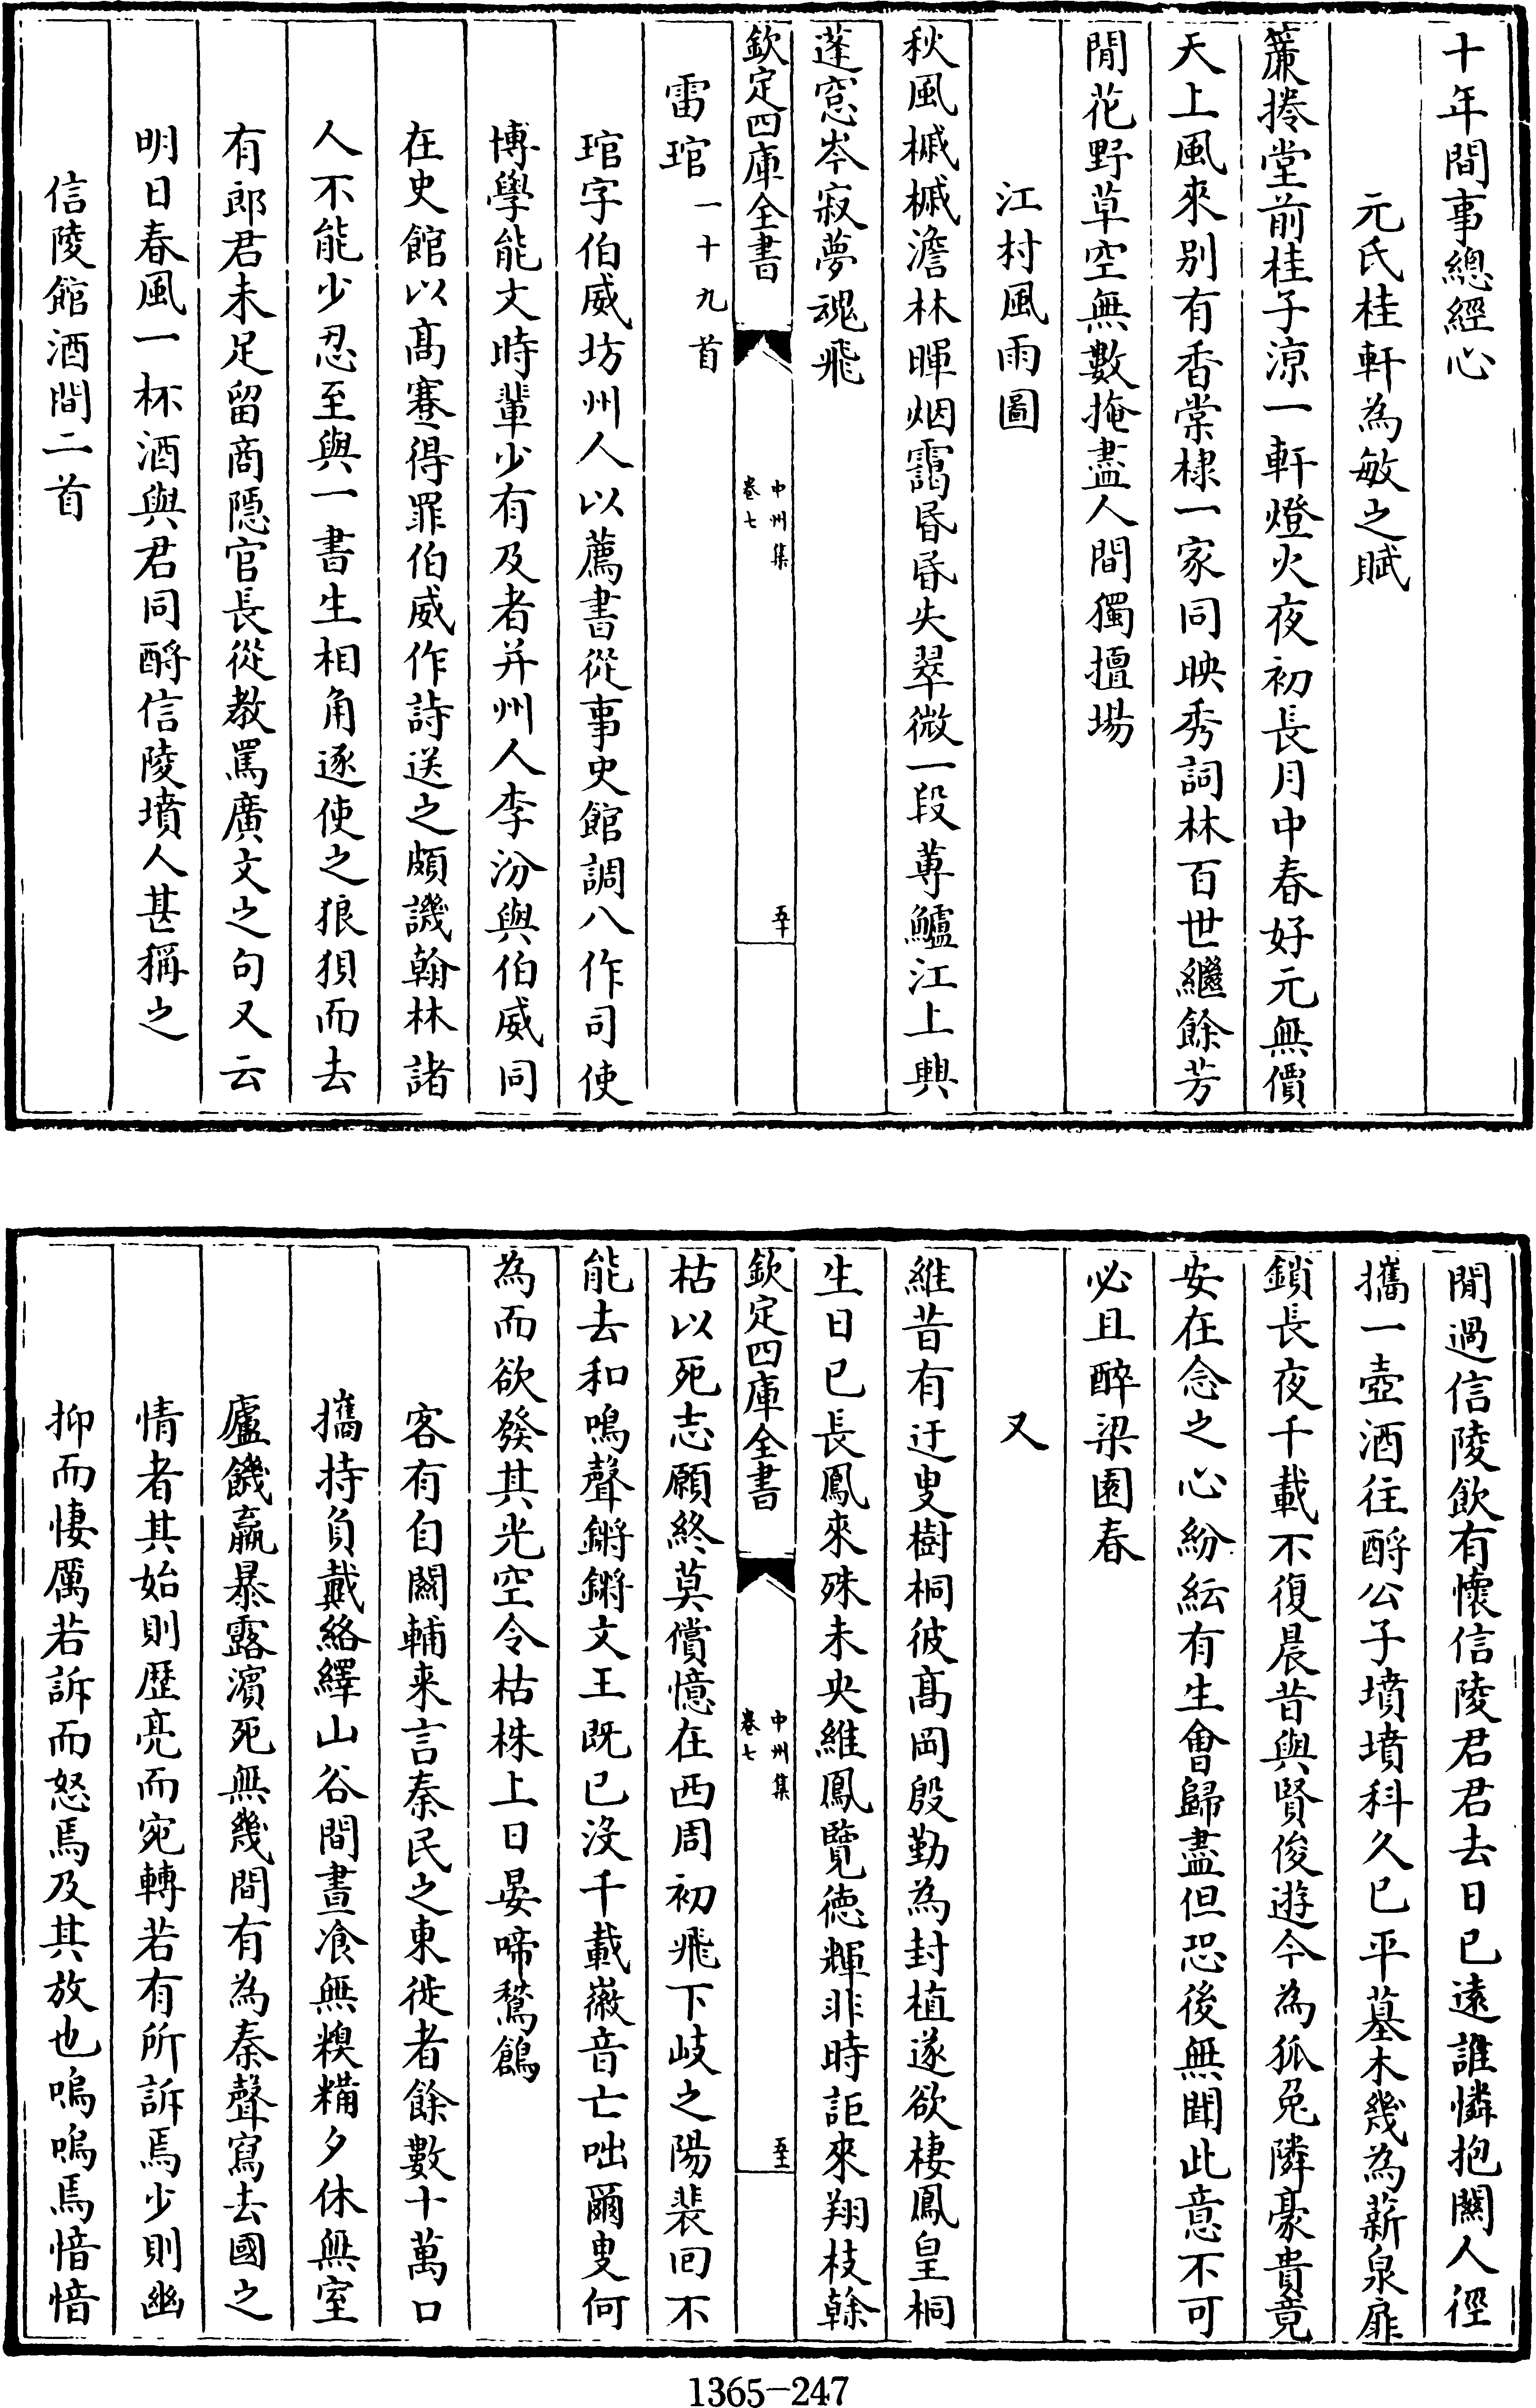 十年間事總經心
元氏桂軒為敏之賦
簾捲堂前桂子涼一軒燈火夜初長月中春好元無價
天上風來别有香棠棣一家同映秀詞林百世繼餘芳
閒花野草空無數掩盡人間獨擅場
江村風雨圖
秋風槭槭澹林暉烟靄昏昏失翠微一段蓴鱸江上興
蓬窓岑寂夢魂飛
欽定四庫全書
中州集
卷七
五十
雷琯一十九首
琯字伯威坊州人以薦書從事史館調八作司使
博學能文時輩少有及者并州人李汾與伯威同
在史館以高蹇得罪伯威作詩送之頗譏翰林諸
人不能少忍至與一書生相角逐使之狼狽而去
有郎君未足留商隱官長從教罵廣文之句又云
明日春風一杯酒與君同酹信陵墳人甚稱之
信陵館酒間二首
閒過信陵飲有懷信陵君君去日已遠誰憐抱關人徑
攜一壺酒往酹公子墳墳科久已平墓木幾為薪泉扉
鎖長夜千載不復晨昔與賢俊遊今為狐兔隣豪貴竟
安在念之心紛紜有生會歸盡但恐後無聞此意不可
必且醉梁園春
又
維昔有迂叟樹桐彼高岡殷勤為封植遂欲棲鳳皇桐
生日已長鳳來殊未央維鳳覽德輝非時詎來翔枝榦
欽定四庫全書
中州集
卷七
五十一
枯以死志願終莫償憶在西周初飛下岐之陽裴回不
能去和鳴聲鏘鏘文王既已沒千載徽音亡咄爾叟何
為而欲發其光空令枯株上日晏啼鶖鶬
客有自關輔来言秦民之東徙者餘數十萬口
攜持負戴絡繹山谷間晝飡無糗糒夕休無室
廬饑羸暴露濱死無幾間有為秦聲寫去國之
情者其始則歷亮而宛轉若有所訴焉少則幽
抑而悽厲若訴而怒焉及其放也嗚嗚焉愔愔
1365-247